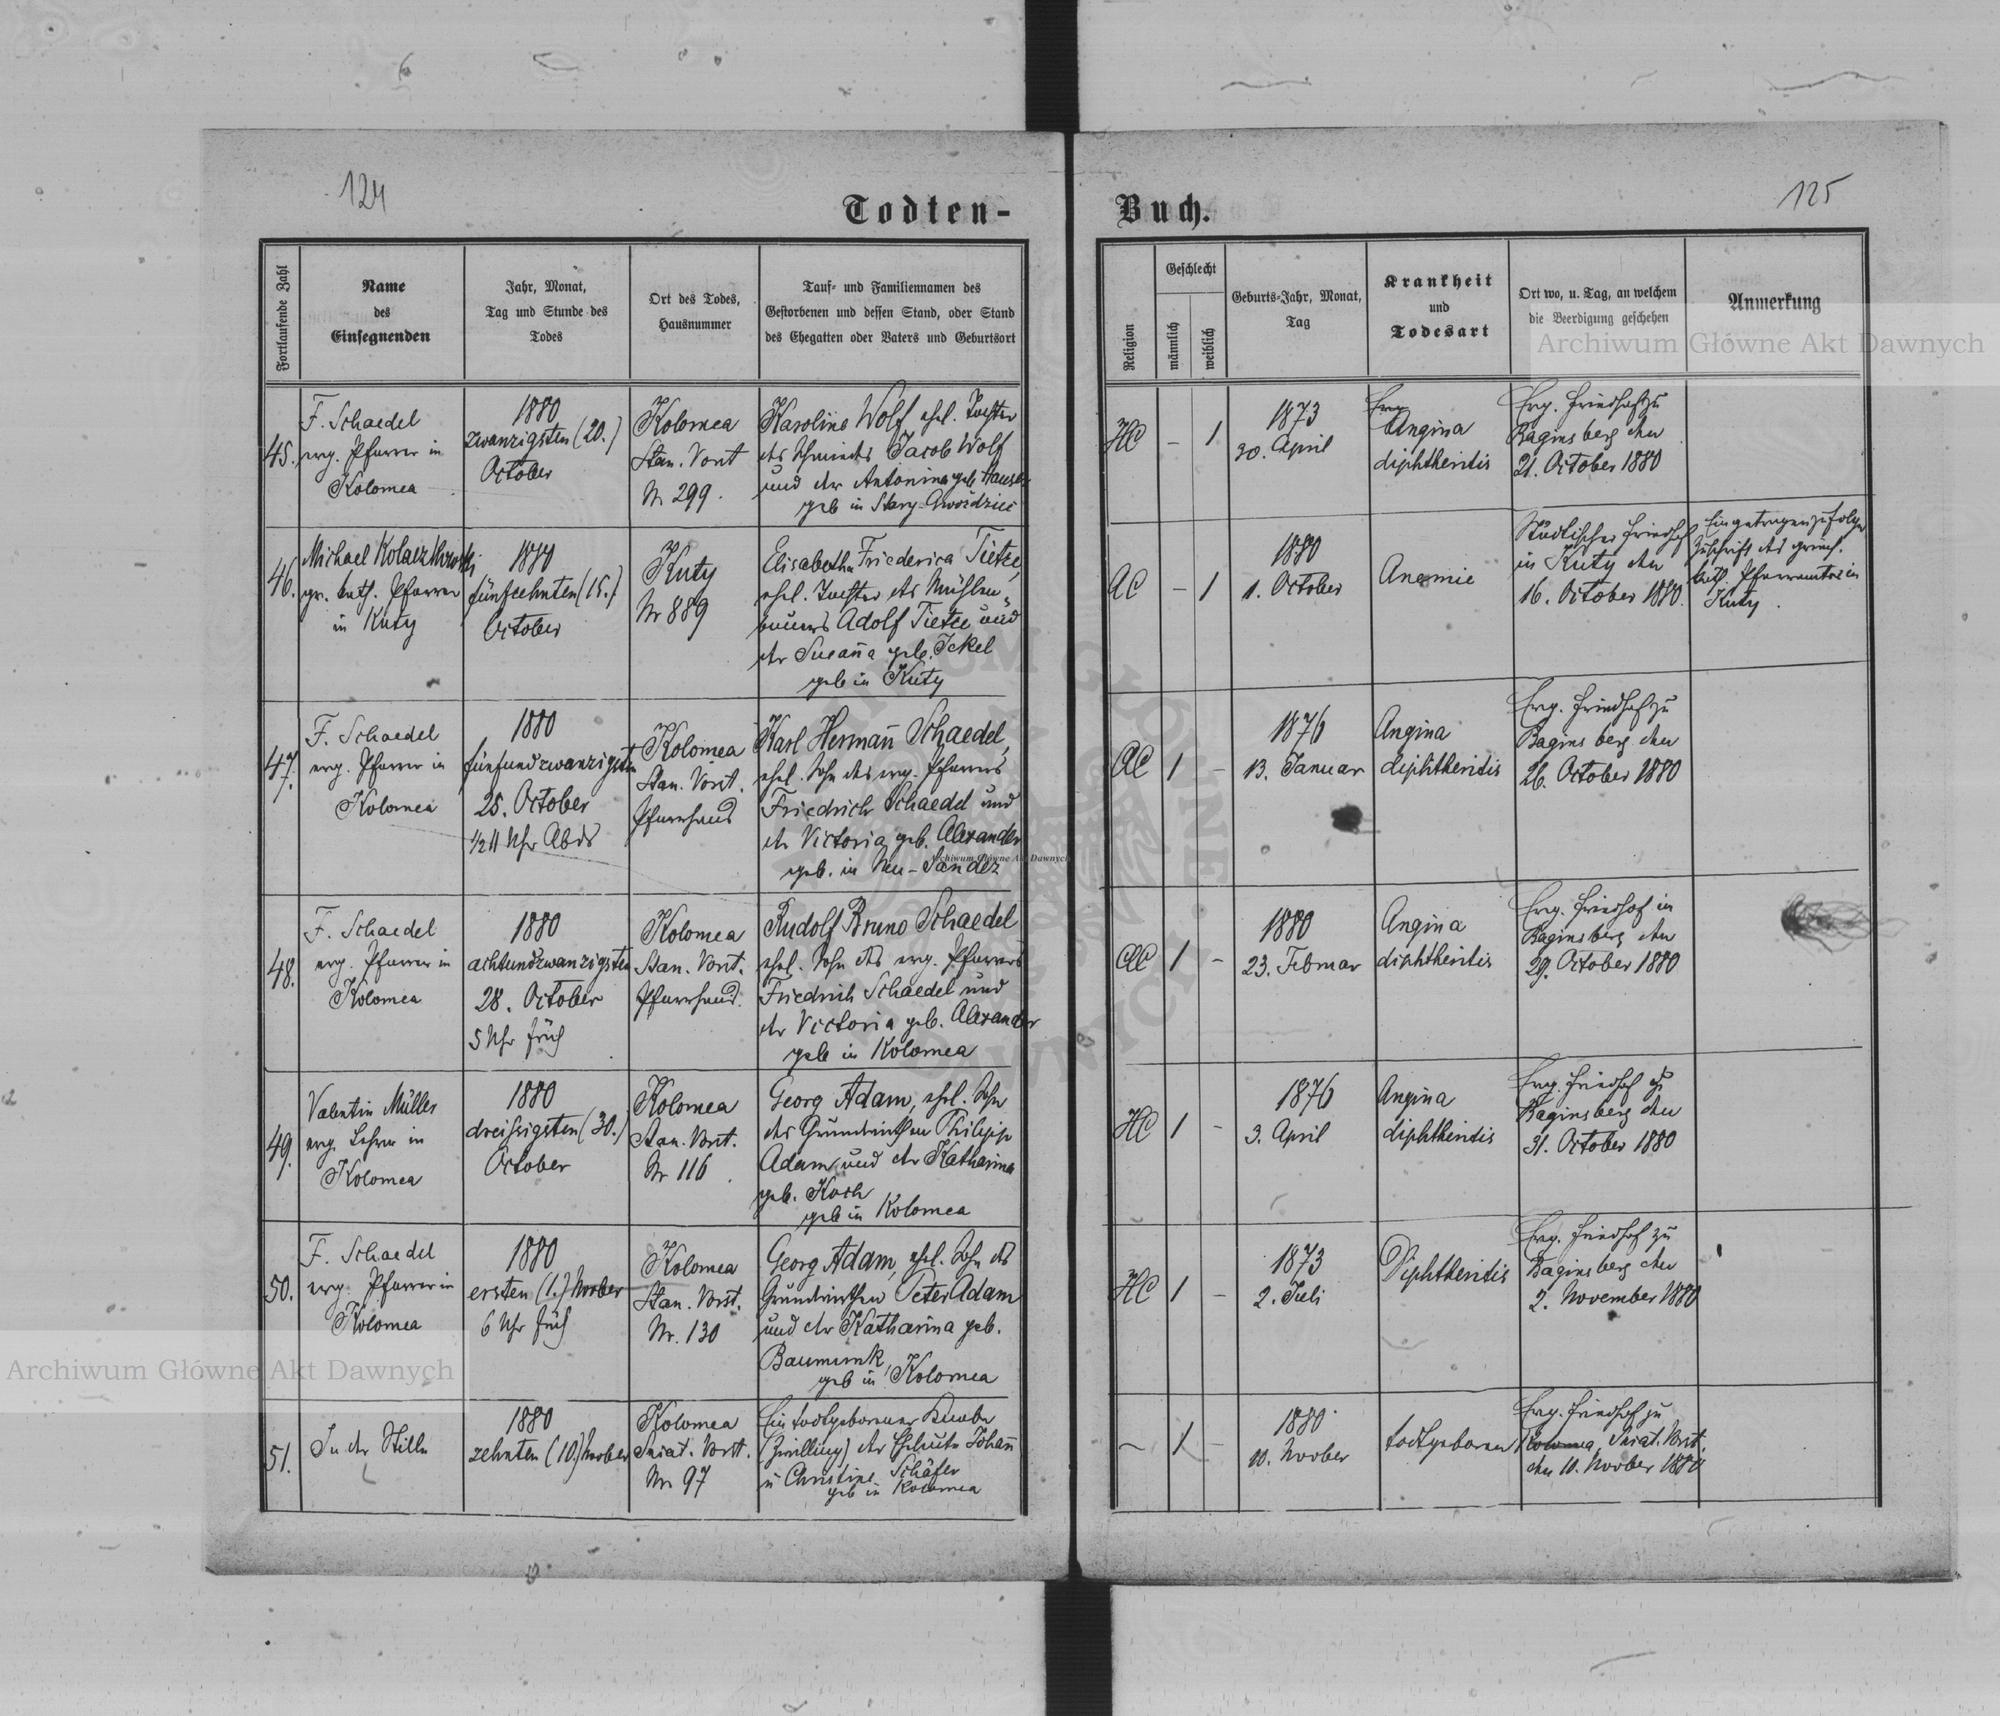 124
125
Todten-
Buch.
Fortlaufende Zahl
Name
des
Einsegnenden
Jahr, Monat,
Tag und Stunde des
Todes
Ort des Todes,
Hausnummer
Tauf- und Familiennamen des
Gestorbenen und dessen Stand, oder Stand
des Ehegatten oder Vaters und Geburtsort
Religion
Geschlecht
männlich
weiblich
Geburts-Jahr, Monat,
Tag
Krankheit
und
Todesart
Ort wo, u. Tag, an welchem
die Beerdigung geschehen
Anmerkung
Archiwum Główne Akt Dawnych
45.
F. Schaedel
evg. Pfarrer in
Kolomea
1880
zwanzigsten (20.)
October
Kolomea
Stan. Vorst
Nr. 299.
Karoline Wolf ehel. Tochter
des Schmieds Jacob Wolf
und der Antonina geb. Hauser
geb in Stary-Gwoździec
HC
-
1
1873
30. April
Angina
diphtheritis
Evg. Friedhof zu
Baginsberg den
21. October 1880
46.
Michael
gr. kath. Pfarrer
in Kuty
1880
fünfzehnten (15.)
October
Kuty
Nr 889
Elisabetha Friederica Tietze,
ehel. Tochter des Mühlen-
bauers Adolf Tietze und
der Susanna geb. Ickel
geb in Kuty
AC
-
1
1880
1. October
Anemie
Städtischer Friedhof
in Kuty den
16. October 1880.
Eingetragen zufolge
Zuschrift des griech.
kath. Pfarramtes in
Kuty.
47.
F. Schaedel
evg. Pfarrer in
Kolomea
1880
fünfundzwanzigsten
25. October
½11 Uhr Abds
Kolomea
Stan. Vorst.
Pfarrhaus
Karl Hermann Schaedel,
ehel. Sohn des evg. Pfarrers
Friedrich Schaedel und
der Victoria geb. Alexander
geb. in Neu-Sandez
AC
1
-
1876
13. Januar
Angina
diphtheritis
Evg. Friedhof zu
Baginsberg den
26. October 1880
Archiwum Główne Akt Dawnych
48.
F. Schaedel
evg. Pfarrer in
Kolomea
1880
achtundzwanzigsten
28. October
5 Uhr früh
Kolomea
Stan. Vorst.
Pfarrhaus.
Rudolf Bruno Schaedel
ehel. Sohn des evg. Pfarrers
Friedrich Schaedel und
der Victoria geb. Alexander
geb in Kolomea
AC
1
-
1880
23. Februar
Angina
diphtheritis
Evg. Friedhof in
Baginsberg den
29. October 1880
49.
Valentin Müller
evg. Lehrer in
Kolomea
1880
dreissigsten (30.)
October
Kolomea
Stan. Vorst.
Nr 116
Georg Adam, ehel. Sohn
des Grundwirthen Philipp
Adam und der Katharina
geb. Koch
geb in Kolomea
HC
1
-
1876
3. April
Angina
diphtheritis
Evg. Friedhof zu
Baginsberg den
31. October 1880
50.
F. Schaedel
evg. Pfarrer in
Kolomea
1880
ersten (1.) Novber
6 Uhr früh
Kolomea
Stan. Vorst.
Nr. 130
Georg Adam, ehel. Sohn des
Grundwirthen Peter Adam
und der Katharina geb.
geb in Kolomea
HC
1
-
1873
2. Juli
Diphtheritis
Evg. Friedhof zu
Baginsberg den
2. November 1880
51.
In der Stille
1880
zehnten (10.) Novber
Kolomea
Sniat. Vorst.
Nr 97
Ein todtgeborener Knabe
(Zwilling) der Eheleute Johann
u Christine Schäfer
geb in Kolomea
-
1
-
1880
10. Novber
todtgeboren
Evg. Friedhof zu
Kolomea, Sniat. Vorst.
den 10. Novber 1880
Archiwum Główne Akt Dawnych